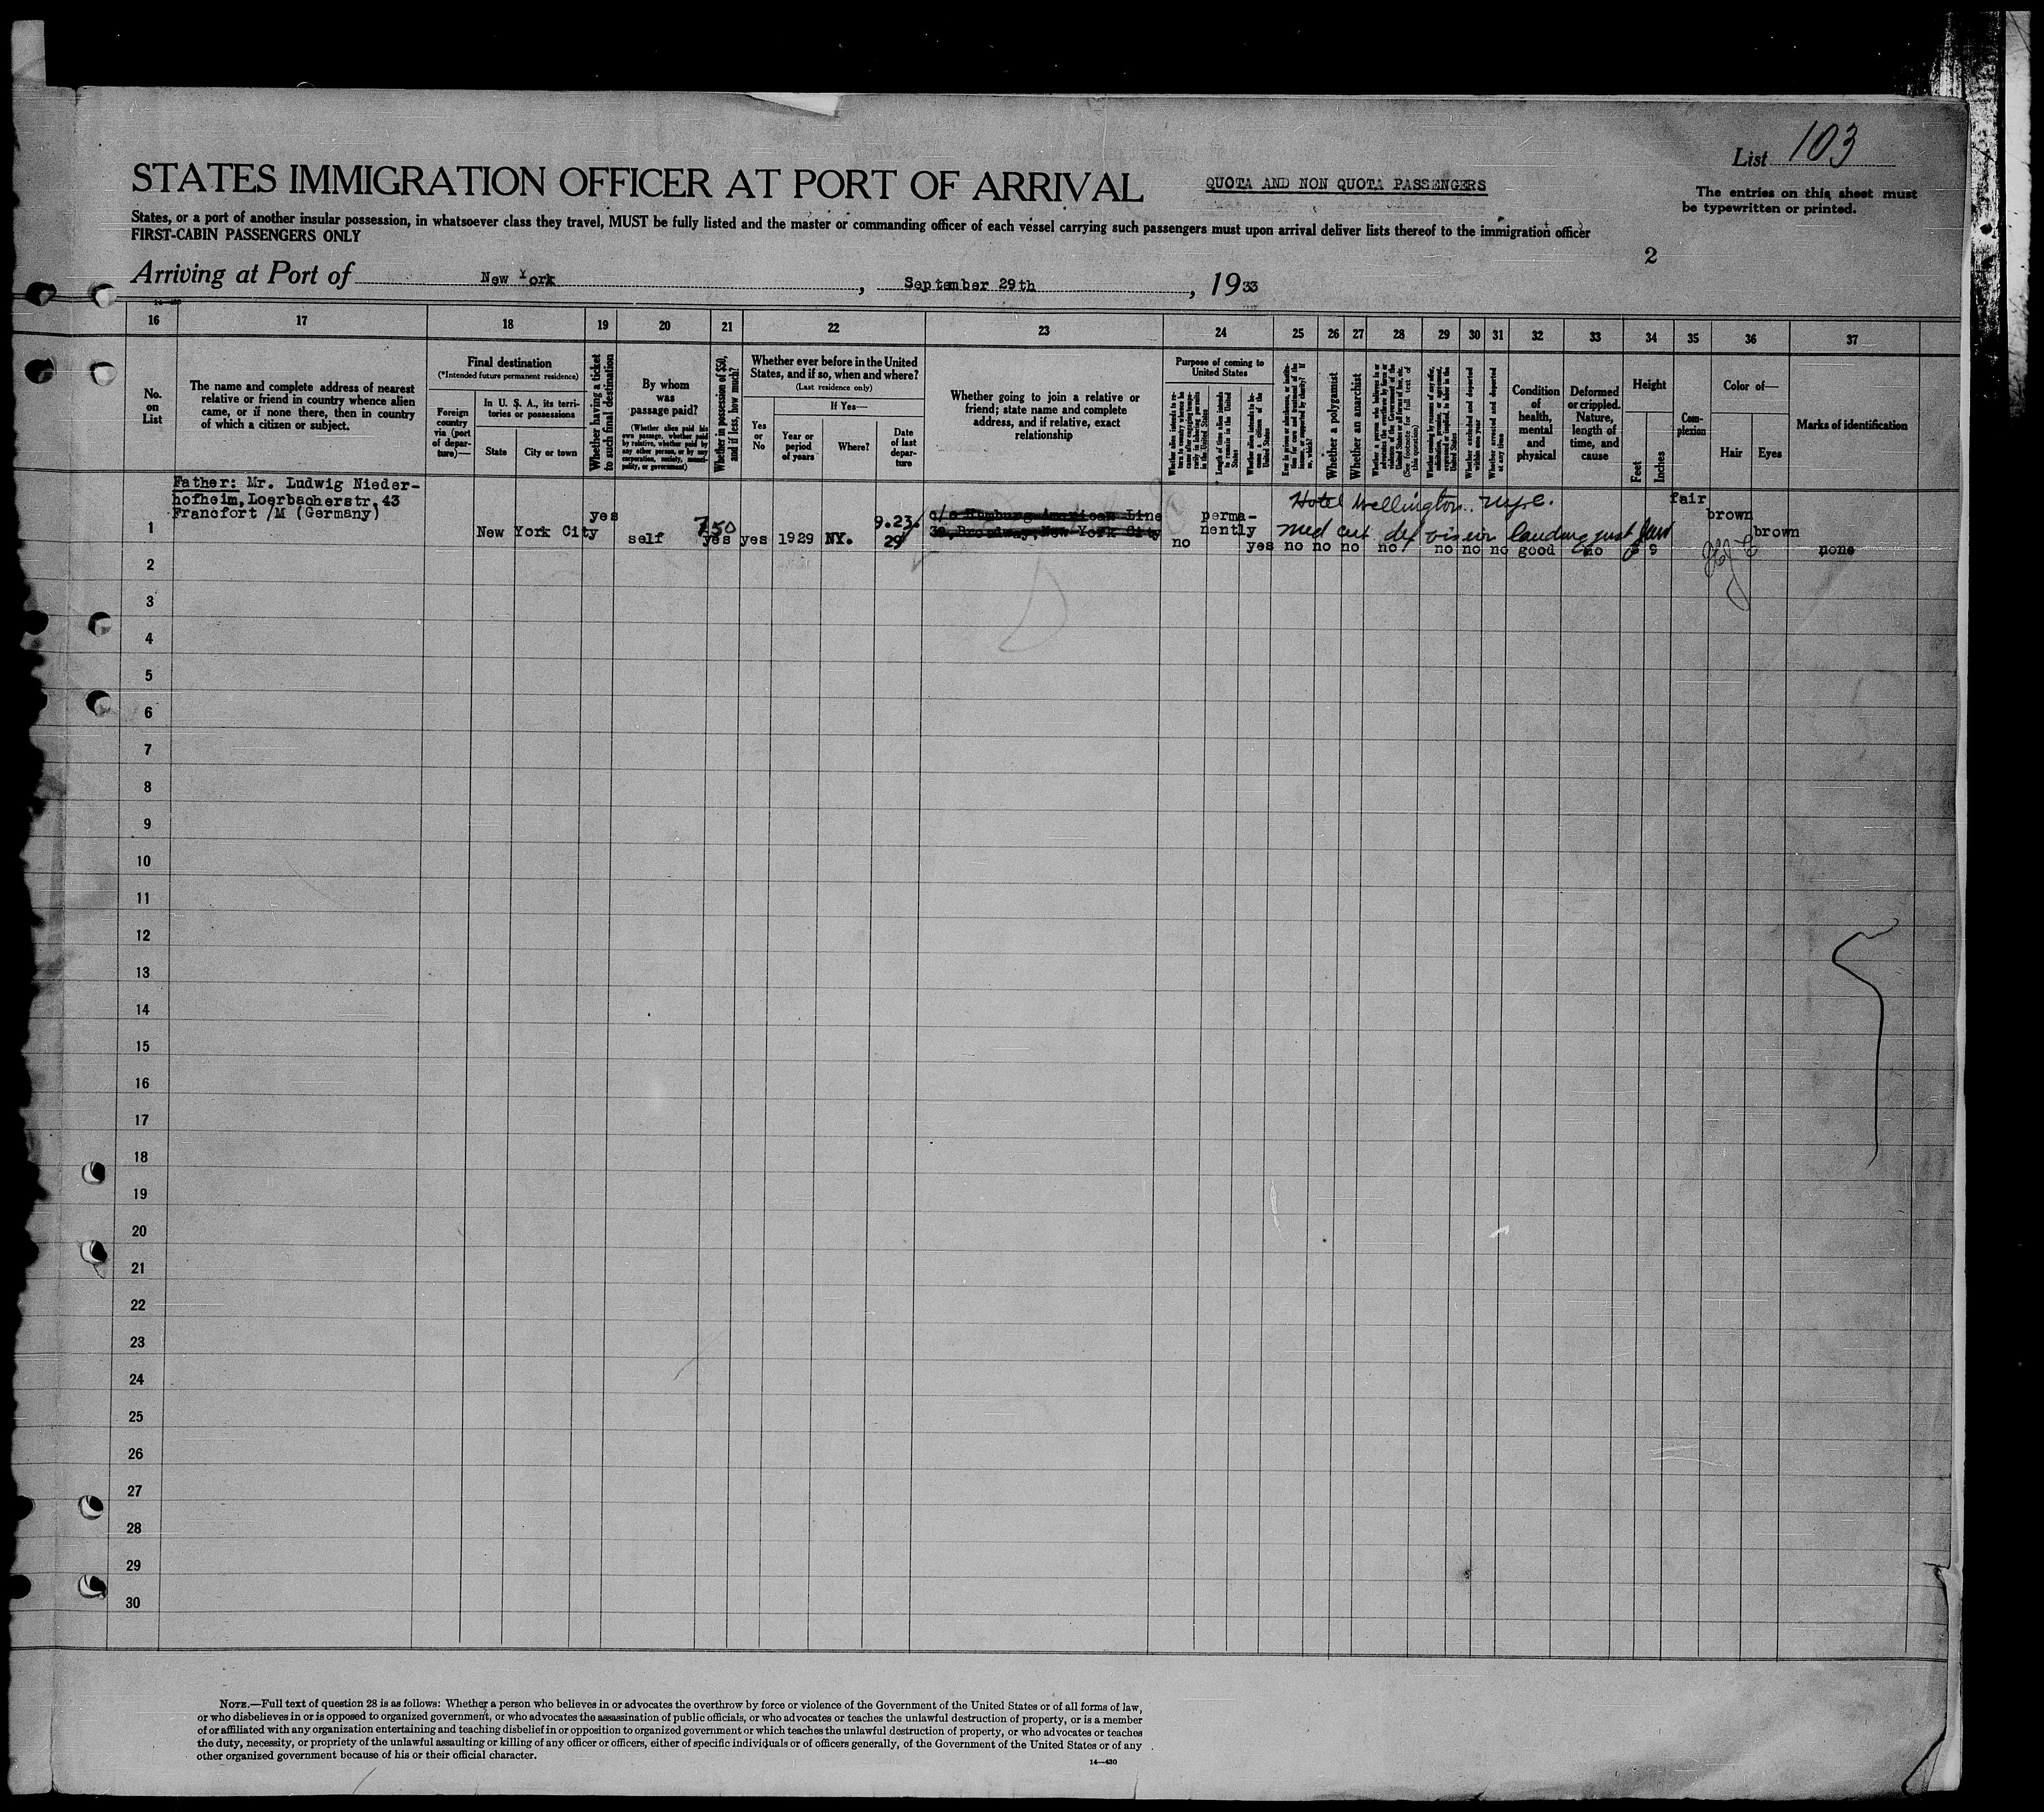 List 103
STATES IMMIGRATION OFFICER AT PORT OF ARRIVAL
QUOTA AND NON QUOTA PASSENGERS
The entries on this sheet must
be typewritten or printed.
States, or a port of another insular possession, in whatsoever class they travel, MUST be fully listed and the master or commanding officer of each vessel carrying such passengers must upon arrival deliver lists thereof to the immigration officer
FIRST-CABIN PASSENGERS ONLY
2
Arriving at Port of New York, September 29th, 1933
16 17 18 19 20 21 22 23 24 25 26 27 28 29 30 31 32 33 34 35 36 37
No.
on
List
The name and complete address of nearest
relative or friend in country whence alien
came, or if none there, then in country
of which a citizen or subject.
Final destination
(*Intended future permanent residence)
Foreign
country
via (port
of depar-
ture)—
In U. S. A., its terri-
tories or possessions
State
City or town
Whether having a ticket
to such final destination
By whom
was
passage paid?
(Whether alien paid his
own passage, whether paid
by relative, whether paid by
any other person, or by any
corporation, society, munici-
pality, or government)
Whether in possession of $50,
and if less, how much?
Whether ever before in the United
States, and if so, when and where?
(Last residence only)
Yes
or
No
If Yes—
Year or
period
of years
Where?
Date
of last
depar-
ture
Whether going to join a relative or
friend; state name and complete
address, and if relative, exact
relationship
Purpose of coming to
United States
Length of time alien intends
to remain in the United
States
Whether a polygamist
Whether an anarchist
(See footnote for full text of
this question)
Whether excluded and deported
within one year
Whether arrested and deported
at any time
Condition
of
health,
mental
and
physical
Deformed
or crippled.
Nature,
length of
time, and
cause
Height
Feet
Inches
Com-
plexion
Color of—
Hair
Eyes
Marks of identification
Father: Mr. Ludwig Nieder-
hofheim, Loerbacherstr, 43
Francfort /M (Germany)
1 New York City yes self 750 yes yes 1929 NY. 9.23.
29
c/o Hamburg American Line
39, Broadway, New York City
no perma-
nently
yes
Hotel Wellington. nyc.
med cert def vision landing
no no no no no no no good no 5 9
fair
brown
brown
none
2
3
4
5
6
7
8
9
10
11
12
13
14
15
16
17
18
19
20
21
22
23
24
25
26
27
28
29
30
NOTE.—Full text of question 28 is as follows: Whether a person who believes in or advocates the overthrow by force or violence of the Government of the United States or of all forms of law,
or who disbelieves in or is opposed to organized government, or who advocates the assassination of public officials, or who advocates or teaches the unlawful destruction of property, or is a member
of or affiliated with any organization entertaining and teaching disbelief in or opposition to organized government or which teaches the unlawful destruction of property, or who advocates or teaches
the duty, necessity, or propriety of the unlawful assaulting or killing of any officer or officers, either of specific individuals or of officers generally, of the Government of the United States or of any
other organized government because of his or their official character.
14—430